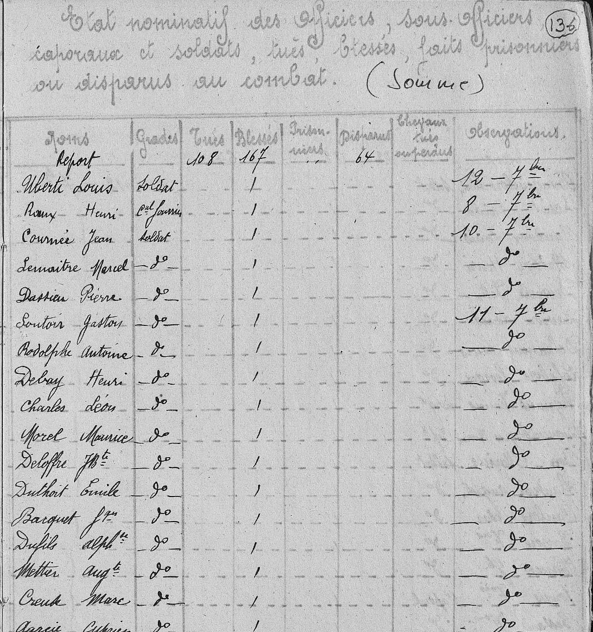 Etat nominatif des Officiers, sous-Officiers 136
caporaux et soldats, tués, blessés, faits prisonniers
ou disparus au combat. (Somme)
Noms Grades Tués Blessés Prison-niers Disparus Chevaux tués ou perdus Observations.
Report 108 167 .. 64
Uberti Louis soldat 1 12 - 7bre
Roux Henri Cal fourrier 1 8 - 7bre
Cournée Jean soldat 1 10 - 7bre
Lemaitre Marcel - do - 1 - do -
Dassieu Pierre - do - 1 - do -
Gaston - do - 1 11 - 7bre
Rodolphe Antoine - do - 1 - do -
Debay Henri - do - 1 - do -
Charles Léon - do - 1 - do -
Morel Maurice - do - 1 - do -
Deloffre JBte - do - 1 - do -
Duthoit Emile - do - 1 - do -
Bacquet - do - 1 - do -
Dufils Alphse - do - 1 - do -
Mettier Augte - do - 1 - do -
Marc - do - 1 - do -
Garcie Cyprien - do - 1 - do -